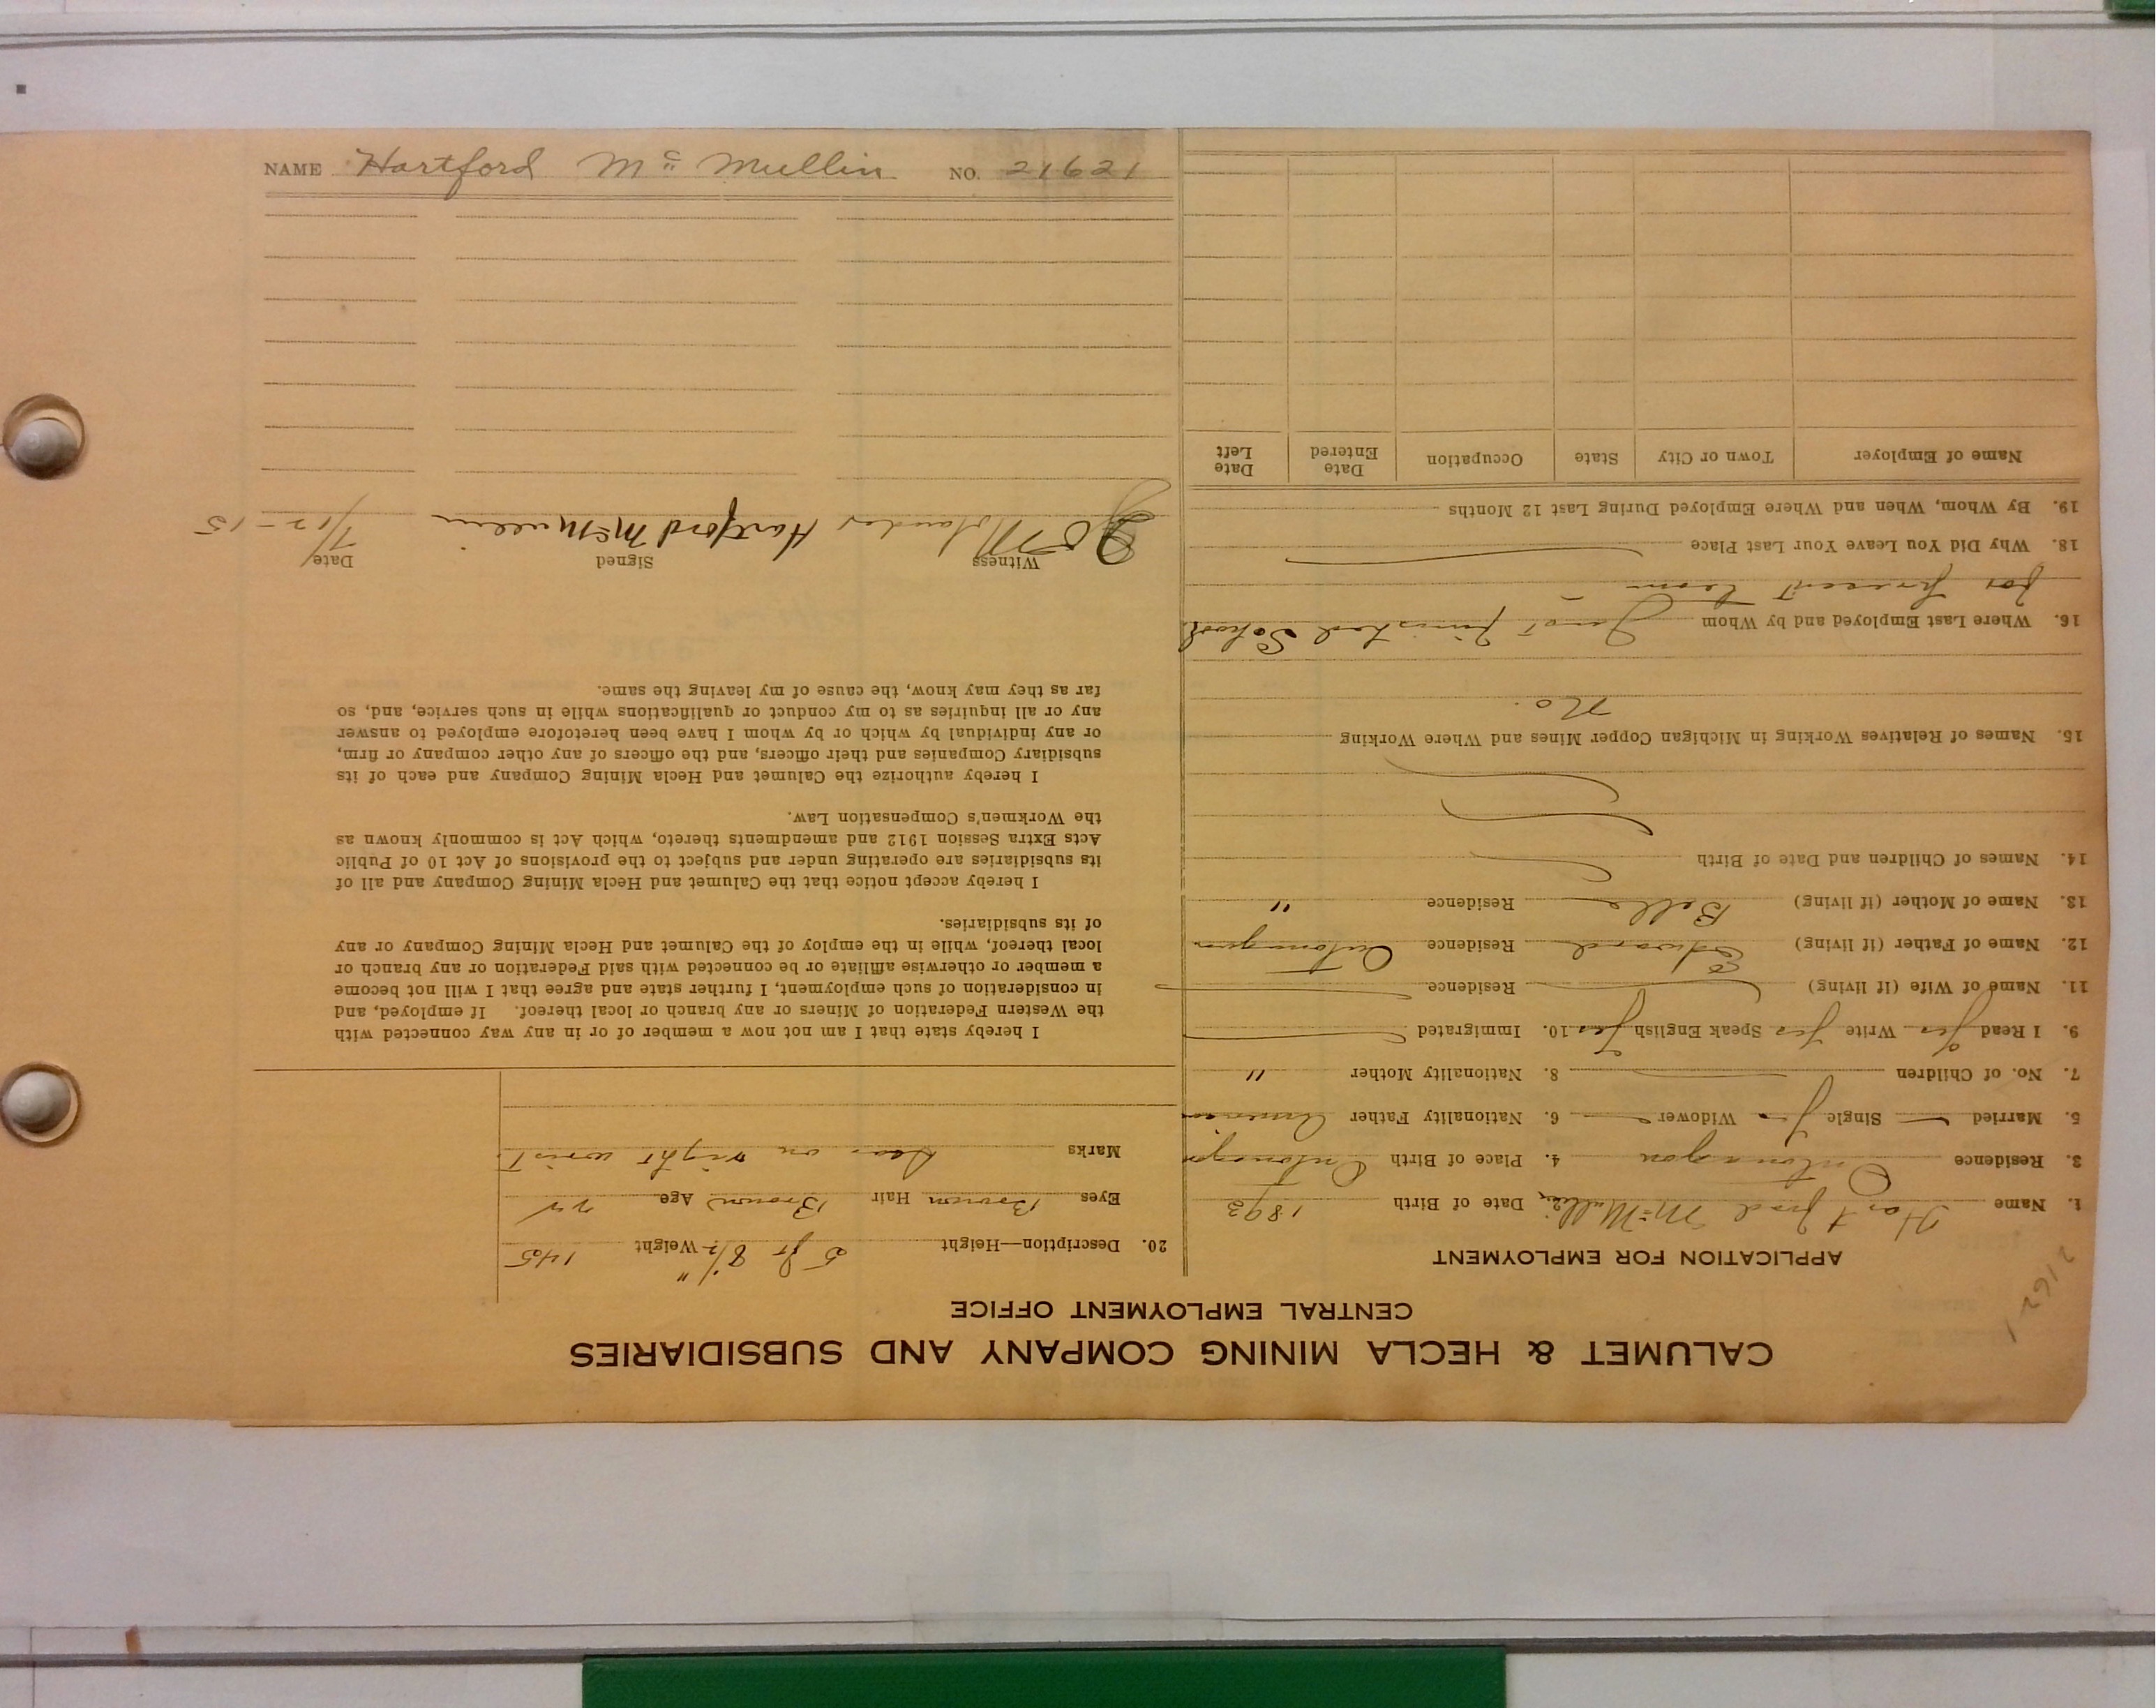 CALUMET & HECLA MINING COMPANY AND SUBSIDIARIES
CENTRAL EMPLOYMENT OFFICE
21621
APPLICATION FOR EMPLOYMENT
1. Name Hartford McMullin 2. Date of Birth 1893
3. Residence Ontonagon 4. Place of Birth Ontonagon
5. Married — Single Yes Widower — 6. Nationality Father American
7. No. of Children — 8. Nationality Mother "
9. I Read Yes Write Yes Speak English Yes 10. Immigrated
11. Name of Wife (if living) Residence
12. Name of Father (if living) Edward Residence Ontonagon
13. Name of Mother (if living) Belle Residence "
14. Names of Children and Date of Birth
15. Names of Relatives Working in Michigan Copper Mines and Where Working
No.
16. Where Last Employed and by Whom Just finished School
for present term
18. Why Did You Leave Your Last Place
19. By Whom, When and Where Employed During Last 12 Months
Name of Employer Town or City State Occupation Date Entered Date Left
20. Description—Height 5 ft 8 1/2" Weight 145
Eyes Brown Hair Brown Age 22
Marks Scar on right wrist.
I hereby state that I am not now a member of or in any way connected with
the Western Federation of Miners or any branch or local thereof. If employed, and
in consideration of such employment, I further state and agree that I will not become
a member or otherwise affiliate or be connected with said Federation or any branch or
local thereof, while in the employ of the Calumet and Hecla Mining Company or any
of its subsidiaries.
I hereby accept notice that the Calumet and Hecla Mining Company and all of
its subsidiaries are operating under and subject to the provisions of Act 10 of Public
Acts Extra Session 1912 and amendments thereto, which Act is commonly known as
the Workmen's Compensation Law.
I hereby authorize the Calumet and Hecla Mining Company and each of its
subsidiary Companies and their officers, and the officers of any other company or firm,
or any individual by which or by whom I have been heretofore employed to answer
any or all inquiries as to my conduct or qualifications while in such service, and, so
far as they may know, the cause of my leaving the same.
Witness Signed Date
Hartford McMullin 7/12-15
NAME Hartford Mc Mullin NO. 21621